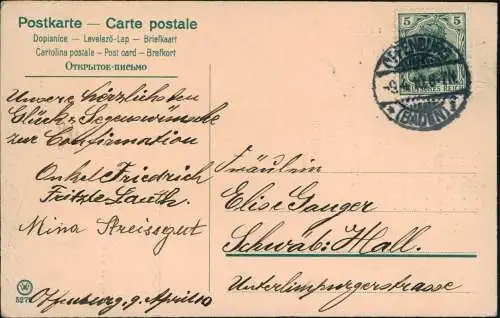 Postkarte — Carte postale
Dopisnice — Levelező-Lap — Briefkaart
Cartolina postale — Post card — Brefkort
Открытое-письмо
5 5
OFFENBURG
(BADEN)
Unsere herzlichsten
Glück & Segenswünsche
zur Confirmation
Onkel Friedrich
Fritzle Lauth.
Mina Streissgut
Offenburg, 9 April 10
Fräulein
Elise Gauger
Schwäb: Hall.
Unterlimpurgerstrasse